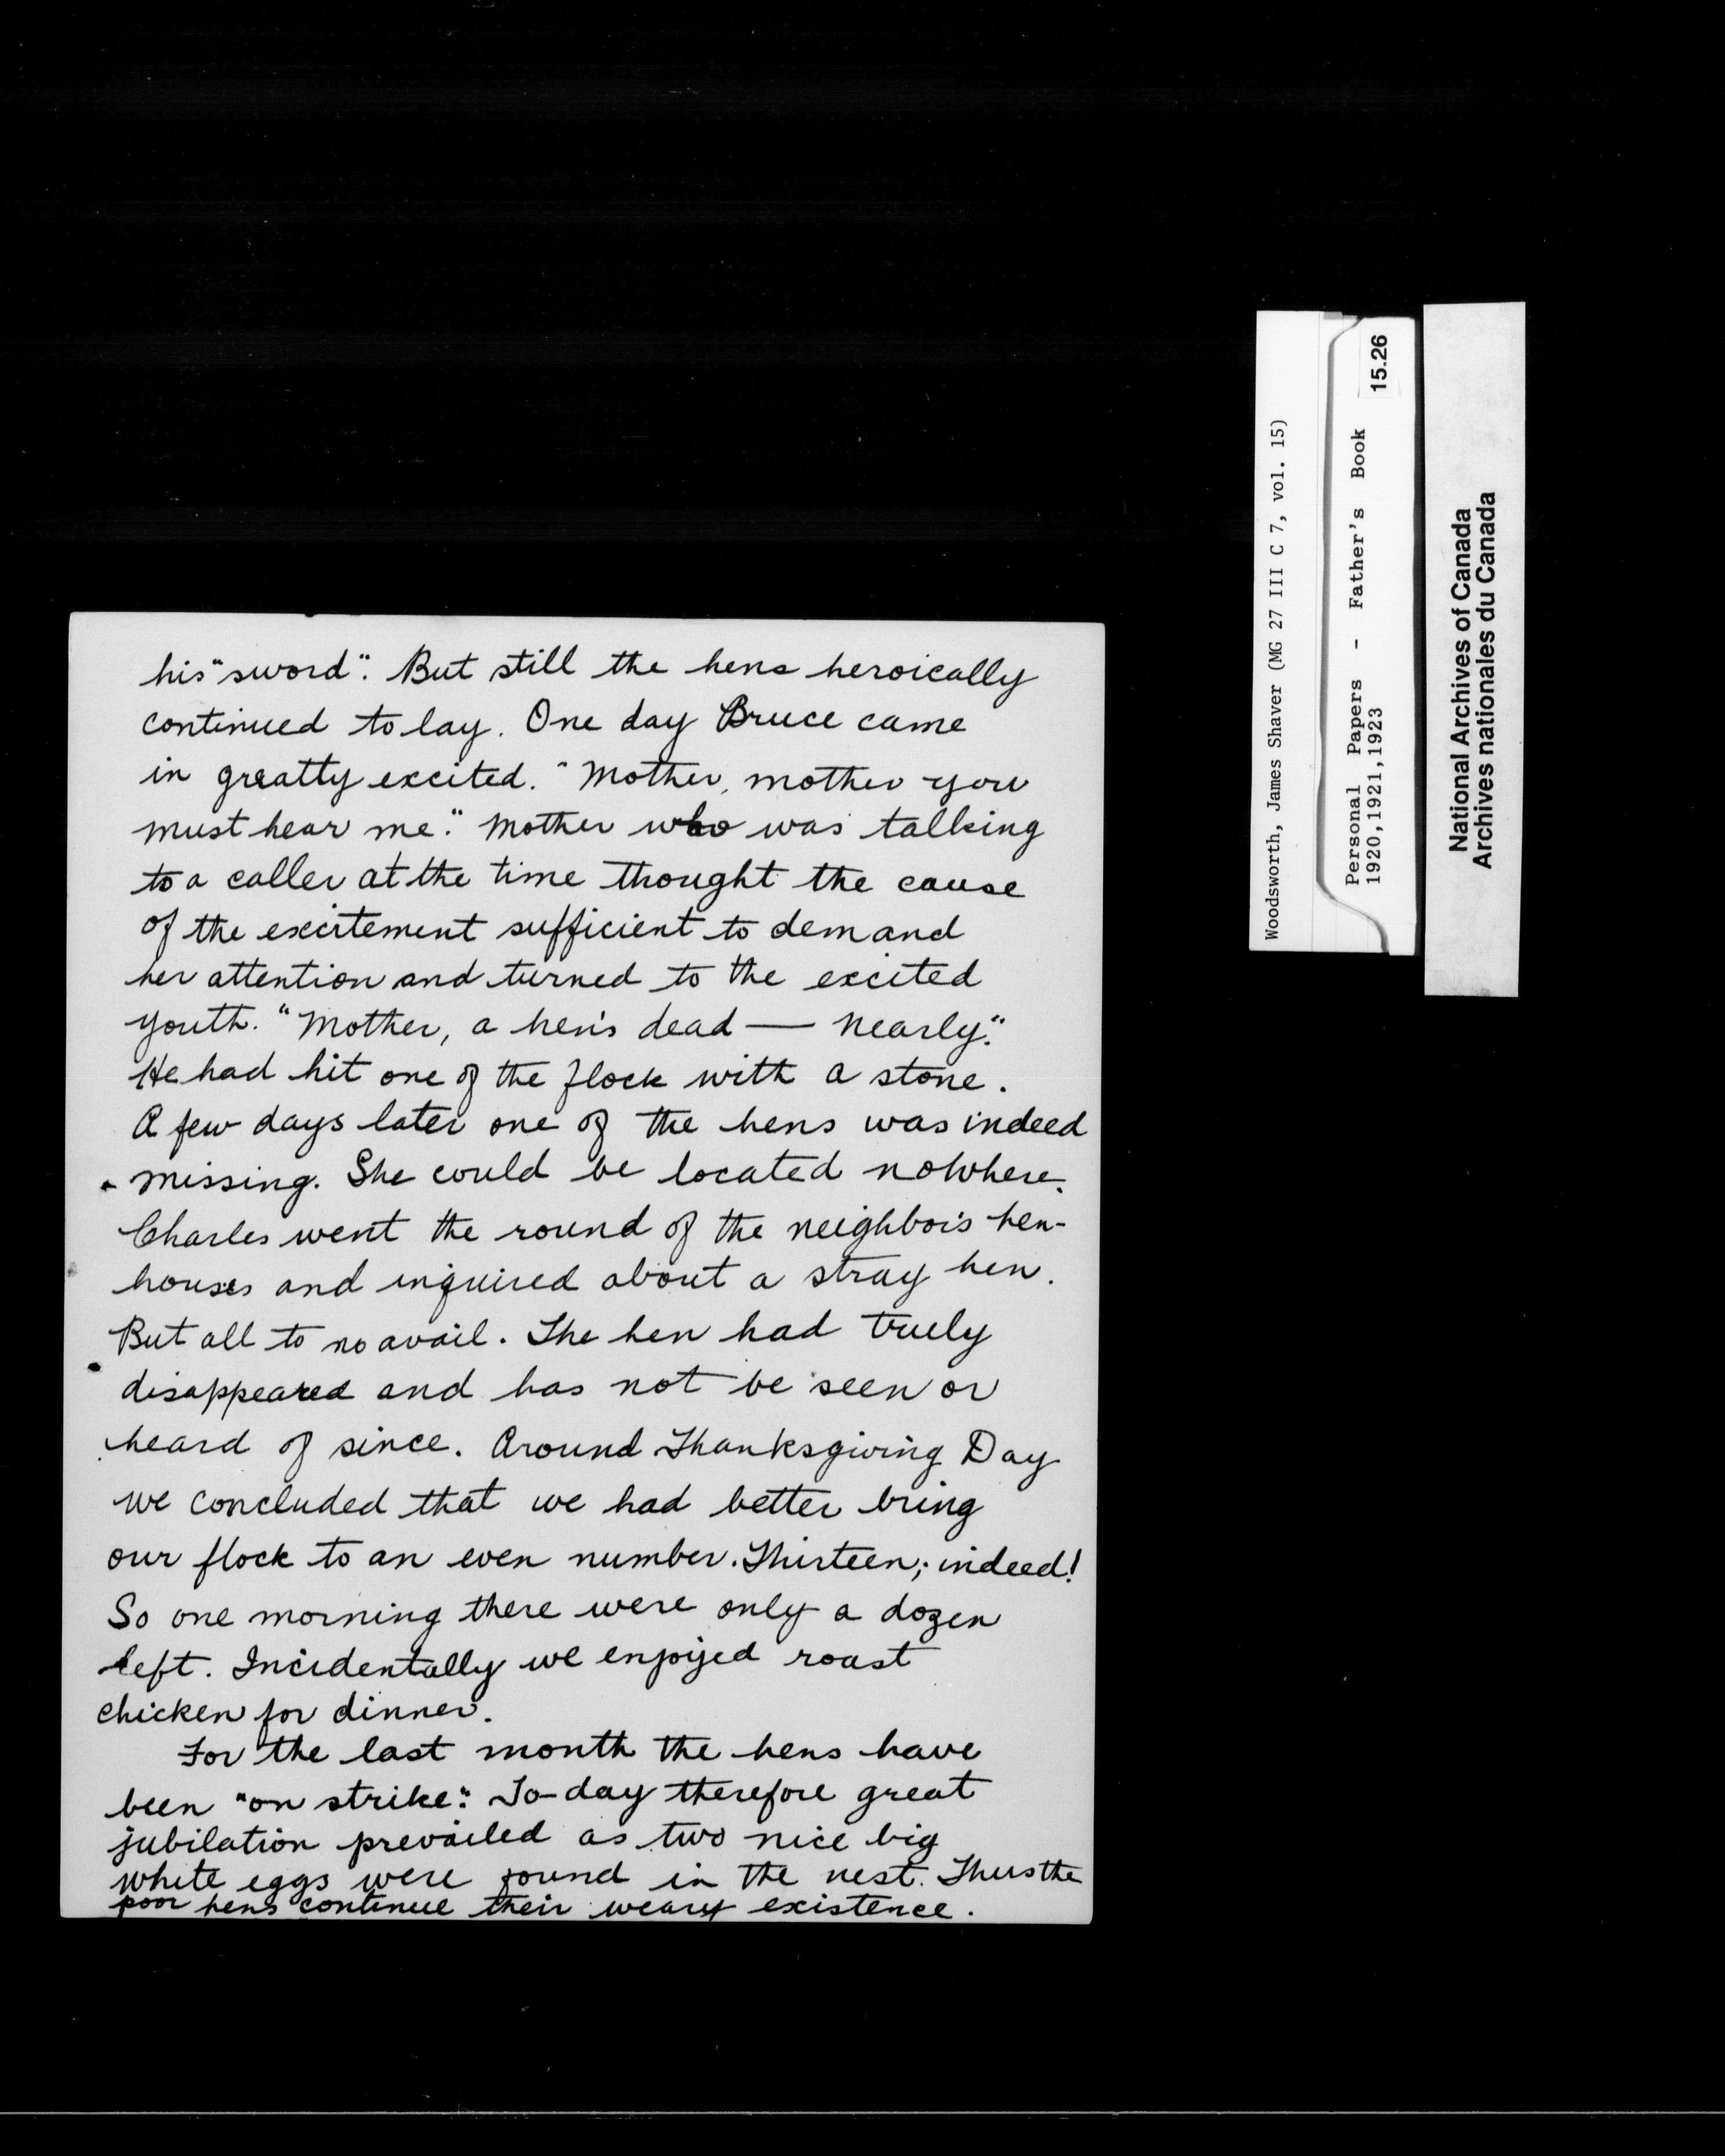 his "sword". But still the hens heroically
continued to lay. One day Bruce came
in greatly excited. "Mother, mother you
must hear me." Mother who was talking
to a caller at the time thought the cause
of the excitement sufficient to demand
her attention and turned to the excited
youth. "Mother, a hen's dead — nearly."
He had hit one of the flock with a stone.
A few days later one of the hens was indeed
missing. She could be located nowhere.
Charles went the round of the neighbor's hen-
houses and inquired about a stray hen.
But all to no avail. The hen had truely
disappeared and has not be seen or
heard of since. Around Thanksgiving Day
we concluded that we had better bring
our flock to an even number. Thirteen; indeed!
So one morning there were only a dozen
left. Incidentally we enjoyed roast
chicken for dinner.
For the last month the hens have
been "on strike". To-day therefore great
jubilation prevailed as two nice big
white eggs were found in the nest. Thus the
poor hens continue their weary existence.
Woodsworth, James Shaver (MG 27 III C 7, vol. 15)
Personal Papers - Father's Book 15.26
1920,1921,1923
National Archives of Canada
Archives nationales du Canada